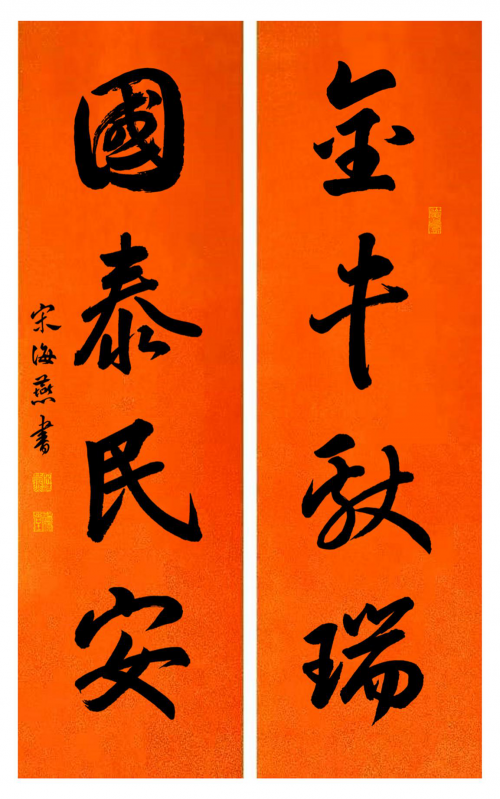 金牛献瑞
國泰民安
宋海燕書